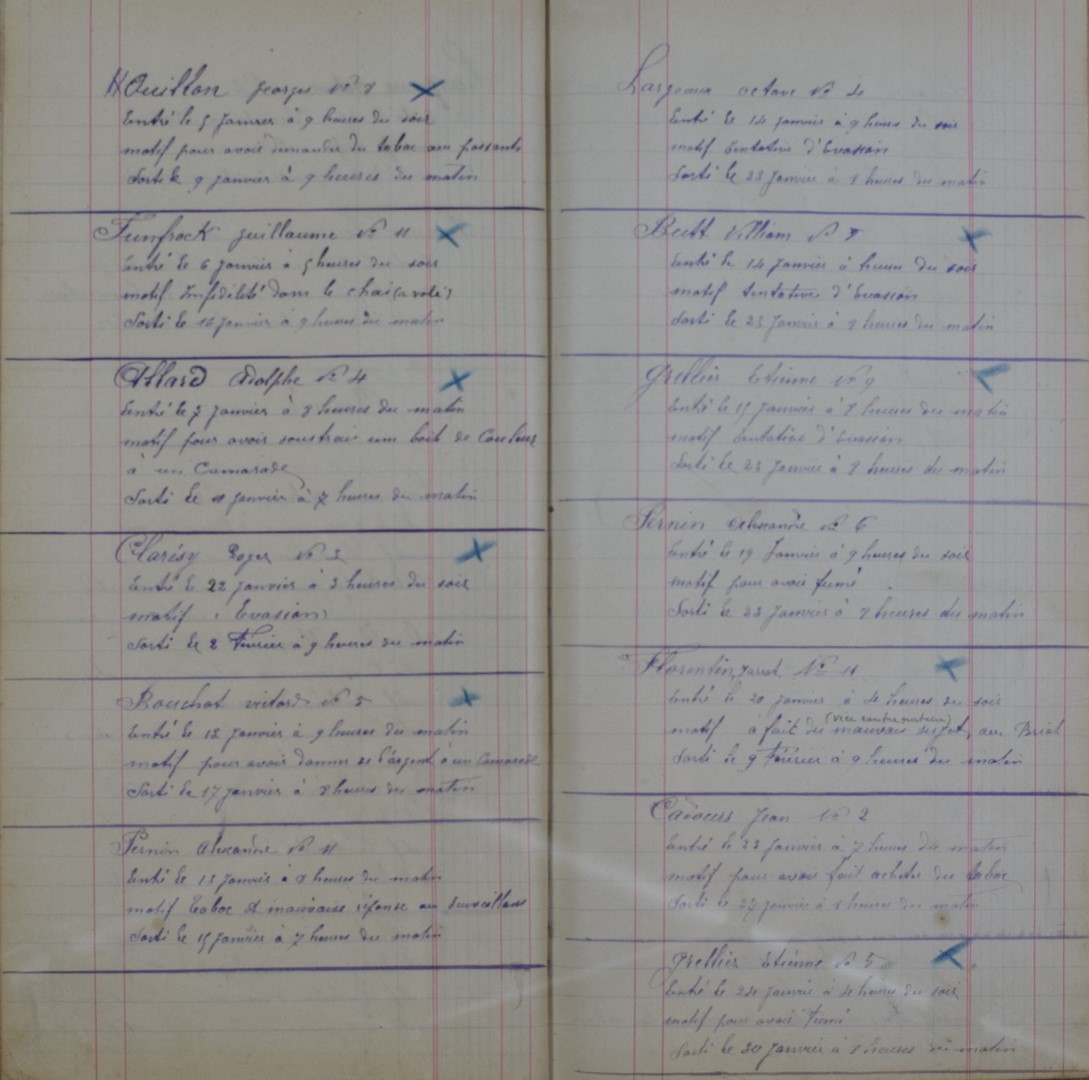 Houillon georges No 8
Entré le 5 janvier à 9 heures du soir
motif pour avoir demander du tabac au passants
Sorti le 9 janvier à 9 heures du matin
Funfrock guillaume No 11
Entré le 6 janvier à 5 heures du soir
motif Infidélité dans le chai (a volé)
Sorti le 16 janvier à 9 heures du matin
Allard Adolphe No 4
Entré le 7 janvier à 8 heures du matin
motif pour avoir soustrait une boit de Couleur
à un Camarade
Sorti le janvier à 7 heures du matin
Clarésy Roger No 3
Entré le 22 janvier à 3 heures du soir
motif : Evasion
Sorti le 8 Fevrier à 9 heures du matin
Bouchot No 5
Entré le 13 janvier à 9 heures du matin
motif pour avoir donner de l'argent à un Camarade
Sorti le 17 janvier à 8 heures du matin
Pernin Alexandre No 11
Entré le 13 janvier à 8 heures du matin
motif tabac et mauvaise réponse au surveillant
Sorti le 15 janvier à 7 heures du matin
Largeaux octave No 4
Entré le 14 janvier à 9 heures du soir
motif tentative d'Evasion
Sorti le 23 janvier à 8 heures du matin
Butt William No 8
Entré le 14 janvier à heures du soir
motif tentative d'Evasion
Sorti le 23 janvier à 8 heures du matin
Grellier Etienne No 9
Entré le 15 janvier à 8 heures du matin
motif tentative d'Evasion
Sorti le 23 janvier à 8 heures du matin
Pernin Alexandre No 6
Entré le 19 Janvier à 9 heures du soir
motif pour avoir fumé
Sorti le 23 janvier à 8 heures du matin
Florentin No 11
Entré le 20 janvier à 4 heures du soir
(vice contre nature)
motif a fait du mauvais sujet, au
Sorti le 9 Fevrier à 9 heures du matin
Cadours Jean No 2
Entré le 23 janvier à 7 heures du matin
motif pour avoir fait acheter du tabac
Sorti le 27 janvier à 8 heures du matin
Grellier Etienne No 5
Entré le 24 janvier à 4 heures du soir
motif pour avoir fumé
Sorti le 30 janvier à 8 heures du matin